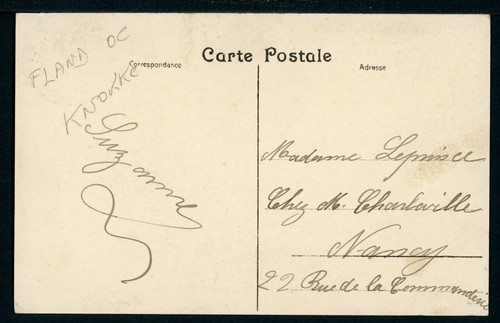 Carte Postale
Correspondance
Adresse
FLAND OC
KNOKKE
Suzanne
Madame Leprince
Chez M. Charleville
Nancy
22 Rue de la Commanderie